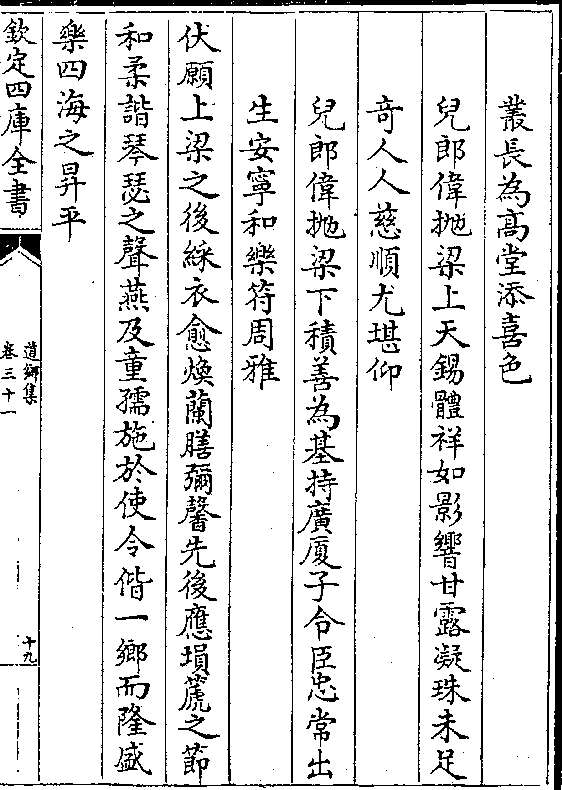 叢長為髙堂添喜色
兒郎偉抛梁上天錫體祥如影響甘露凝珠未足
竒人人慈順尤堪仰
兒郎偉抛梁下積善為基持廣厦子令臣忠常出
生安寧和樂符周雅
伏願上梁之後綵衣愈煥蘭膳彌馨先後應塤篪之節
和柔諧琴瑟之聲燕及童孺施於使令偕一鄉而隆盛
樂四海之昇平
欽定四庫全書
道鄉集
卷三十一
十九